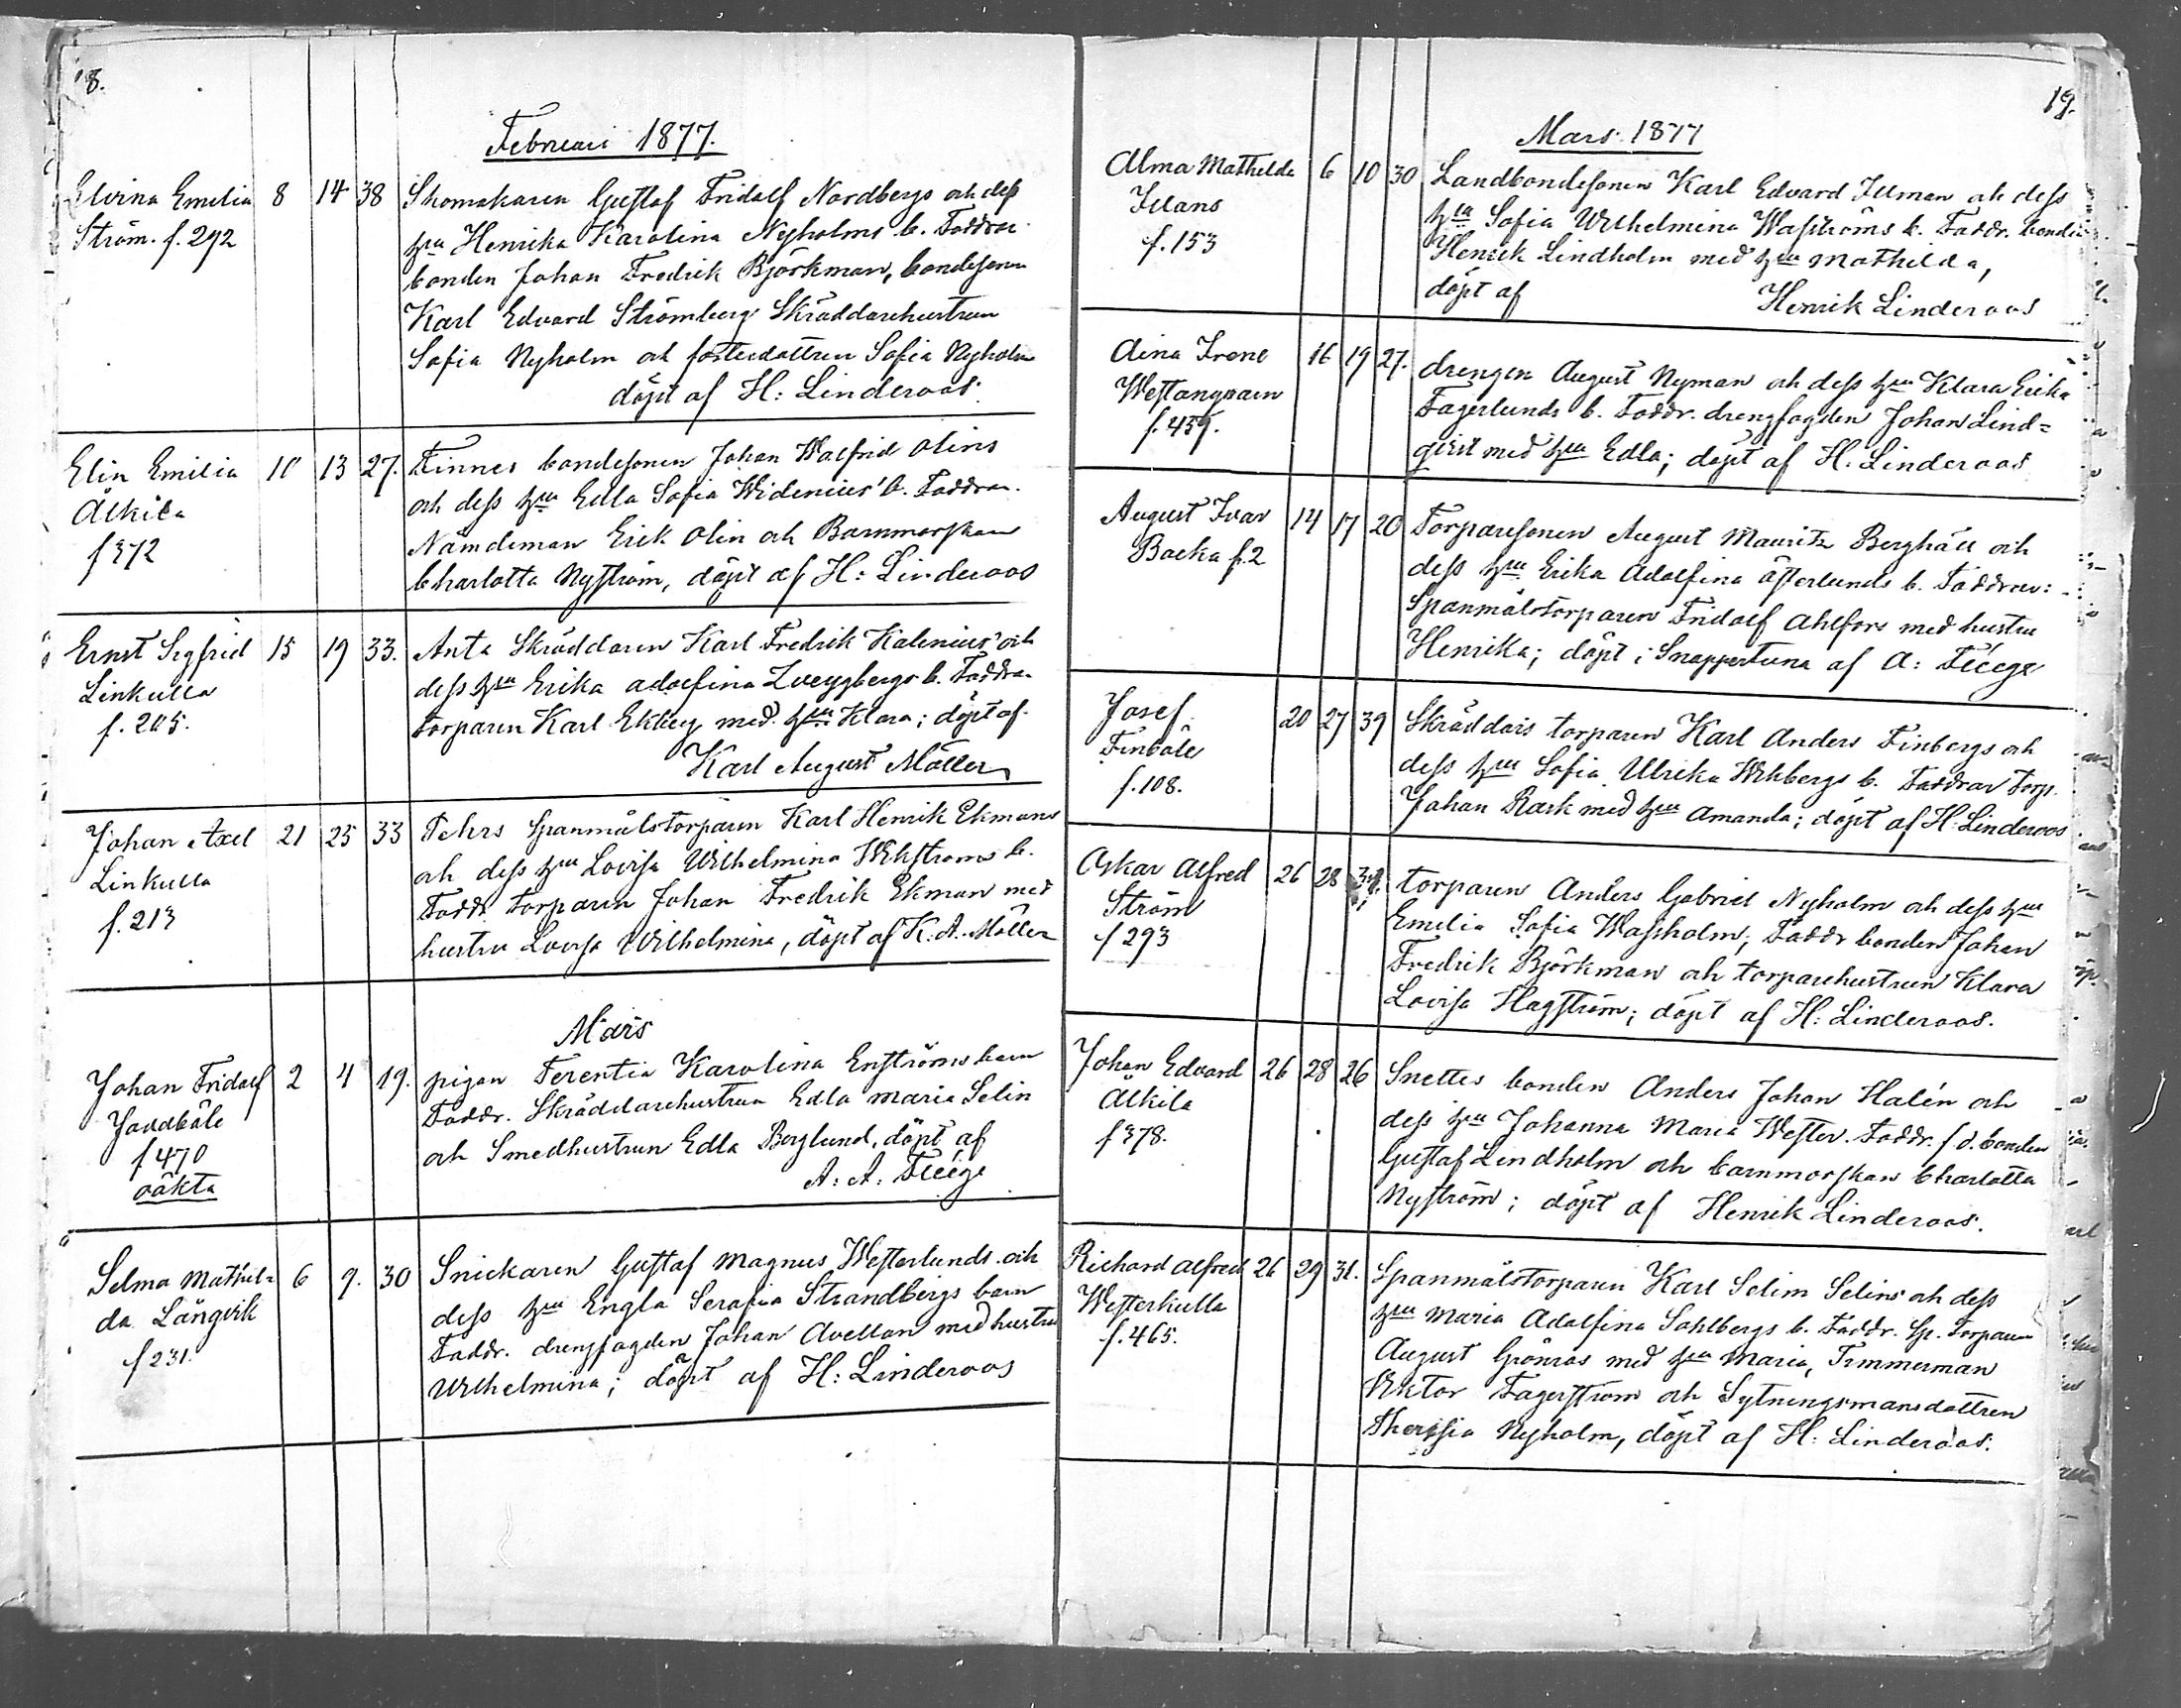 18.
Februari 1877.
Elvina Emilia 8 14 38 Skomakaren Gustaf Fridolf Nordbergs och dess
Ström. f. 292 hru Henrika Karolina Nyholms b. Faddrar
bonden Johan Fredrik Björkman, bondesonen
Karl Edvard Strömberg Skräddarehustrun
Sofia Nyholm och fosterdottren Sofia Nyholm
döpt af H: Linderoos.
Elin Emilia 10 13 27. Finnes bondesonen Johan Walfrid Olins
Älkila och dess hru Edla Sofia Widenius' b. Faddrar.
f 372 Nämdeman Erik Olin och Barnmorskan
Charlotta Nyström, döpt af H: Linderoos
Ernst Sigfrid 15 19 33. Anta Skräddaren Karl Fredrik Kalenius' och
Linkulla dess hru Erika Adolfina Zweygbergs b. Faddrar
f. 205. torparen Karl Ekberg med hru Klara; döpt af
Karl August Möller
Johan Axel 21 25 33 Fehrs Spanmålstorparen Karl Henrik Ekmans
Linkulla och dess hru Lovisa Wilhelmina Wikströms b.
f. 213 Faddr. torparen Johan Fredrik Ekman med
hustru Lovisa Wilhelmina, döpt af K. A. Möller
Mars
Johan Fridolf 2 4 19. pigan Terentia Karolina Enströms barn
Joddböle Faddr. Skräddarehustrun Edla Maria Selin
f 470 och Smedhustrun Edla Berglund, döpt af
oäkta A: A: Fléege
Selma Mathil- 6 9. 30 Snickaren Gustaf Magnus Westerlunds och
da Långvik dess hru Engla Serafia Strandbergs barn
f 231. Faddr. drengfogden Johan Avellan med hustru
Wilhelmina; döpt af H: Linderoos
19.
Mars 1877
Alma Mathilda 6 10 30 Landbondesonen Karl Edvard Illman och dess
Illans hru Sofia Wilhelmina Wasströms b. Faddr. bonden
f. 153 Henrik Lindholm med hru Mathilda,
döpt af Henrik Linderoos
Aina Irene 16 19 27. drengen August Nyman och dess hru Klara Erika
Westangparn Fagerlunds b. Faddr. drengfogden Johan Lind=
f. 459. qvist med hru Edla; döpt af H. Linderoos
August Ivar 14 17 20 Torparesonen August Mauritz Berghäll och
Backa f. 2 dess hru Erika Adolfina Österlunds b. Faddrar:
Spanmålstorparen Fridolf Ahlfors med hustru
Henrika; döpt i Snappertuna af A: Fléege
Josef 20 27 39 Skräddars torparen Karl Anders Finbergs och
Finböle dess hru Sofia Ulrika Wikbergs b. Faddrar Torp.
f. 108. Johan Rask med hru Amanda; döpt af H: Linderoos
Oskar Alfred 26 28 torparen Anders Gabriel Nyholm och dess hru
Ström Emilia Sofia Wassholm; Faddr bonden Johan
f 293 Fredrik Björkman och torparehustrun Klara
Lovisa Hagström; döpt af H: Linderoos.
Johan Edvard 26 28 26 Snettes bonden Anders Johan Halén och
Älkila dess hru Johanna Maria Wester. Faddr. f.d. bonden
f 378. Gustaf Lindholm och barnmorskan Charlotta
Nyström; döpt af Henrik Linderoos.
Richard Alfred 26 29 31. Spanmålstorparen Karl Selim Selins och dess
Westerkulla hru Maria Adolfina Sahlbergs b. Faddr. Sp. Torparen
f. 465. August Grönros med hru Maria, Timmerman
Viktor Fagerström och Sytningsmansdottren
Theresia Nyholm, döpt af H: Linderoos.